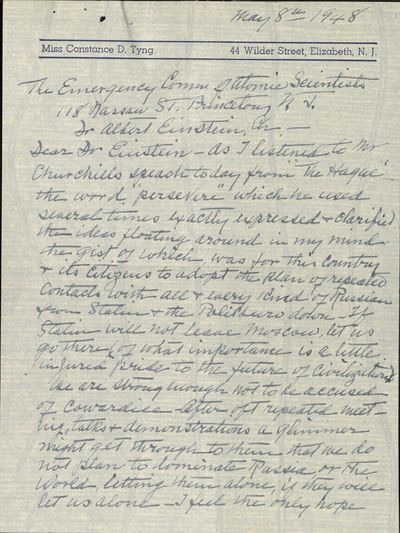 May 8th 1948
Miss Constance D. Tyng 44 Wilder Street, Elizabeth, N. J.
The Emergency Comm of Atomic Scientists
118 Nassau St. Princeton, N. J.
Dr Albert Einstein, Ch. —
Dear Dr Einstein — As I listened to Mr
Churchills speach today from The Hague"
the word, persevere" which he used
several times exactly expressed & clarified
the ideas floating around in my mind
the gist of which was for this country
& its citizens to adopt the plan of repeated
contacts with all & every kind of Russian
from Stalin & the Politburo down — If
Stalin will not leave Moscow, let us
go there (of what importance is a little
injured pride to the future of Civilization)
We are strong enough not to be accused
of cowardice — After oft repeated meet-
ing, talks & demonstrations a glimmer
might get through to them that we do
not plan to dominate Russia or the
World, letting them alone, if they will
let us alone — I feel the only hope